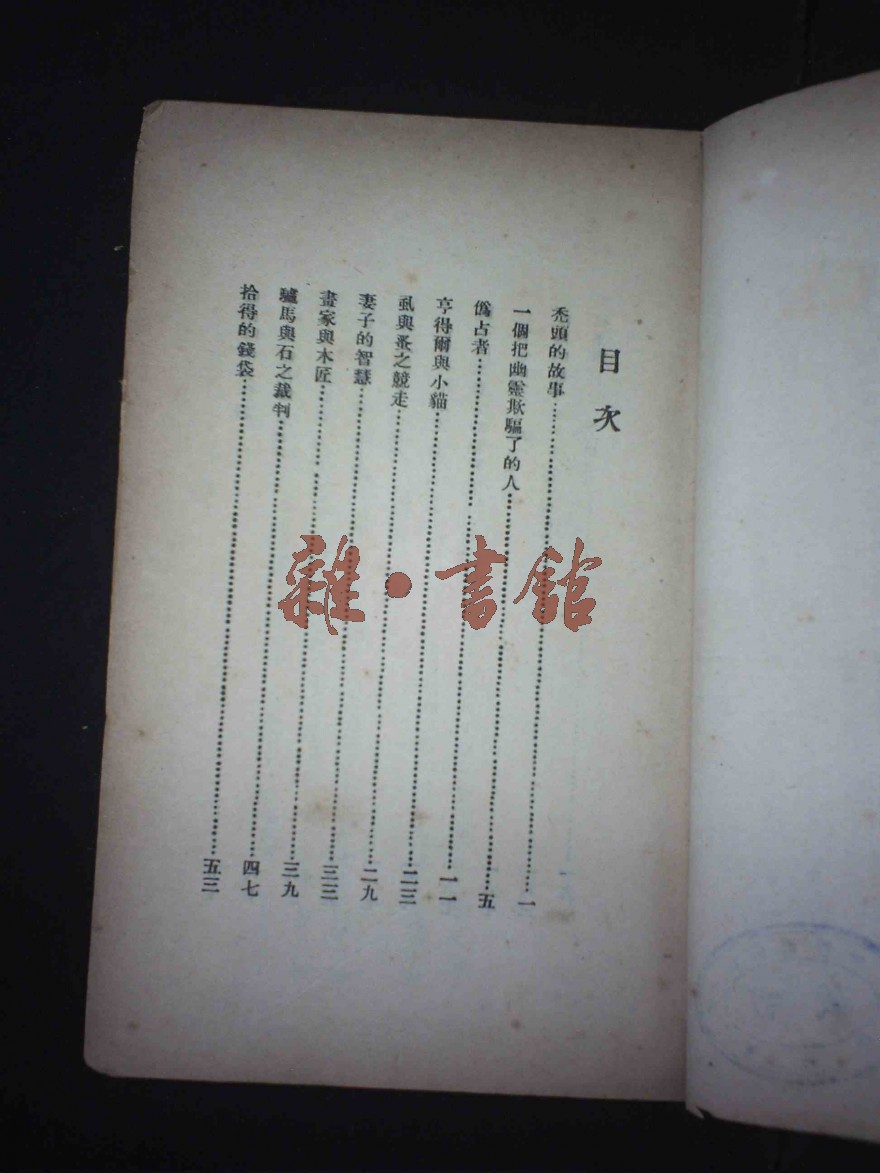 目次
禿頭的故事……一
一個把幽靈欺騙了的人……五
僞占者……一一
亨得爾與小貓……二三
虱與蚤之競走……二九
妻子的智慧……三三
畫家與木匠……三九
驢馬與石之裁判……四七
拾得的錢袋……五三
雜·書館